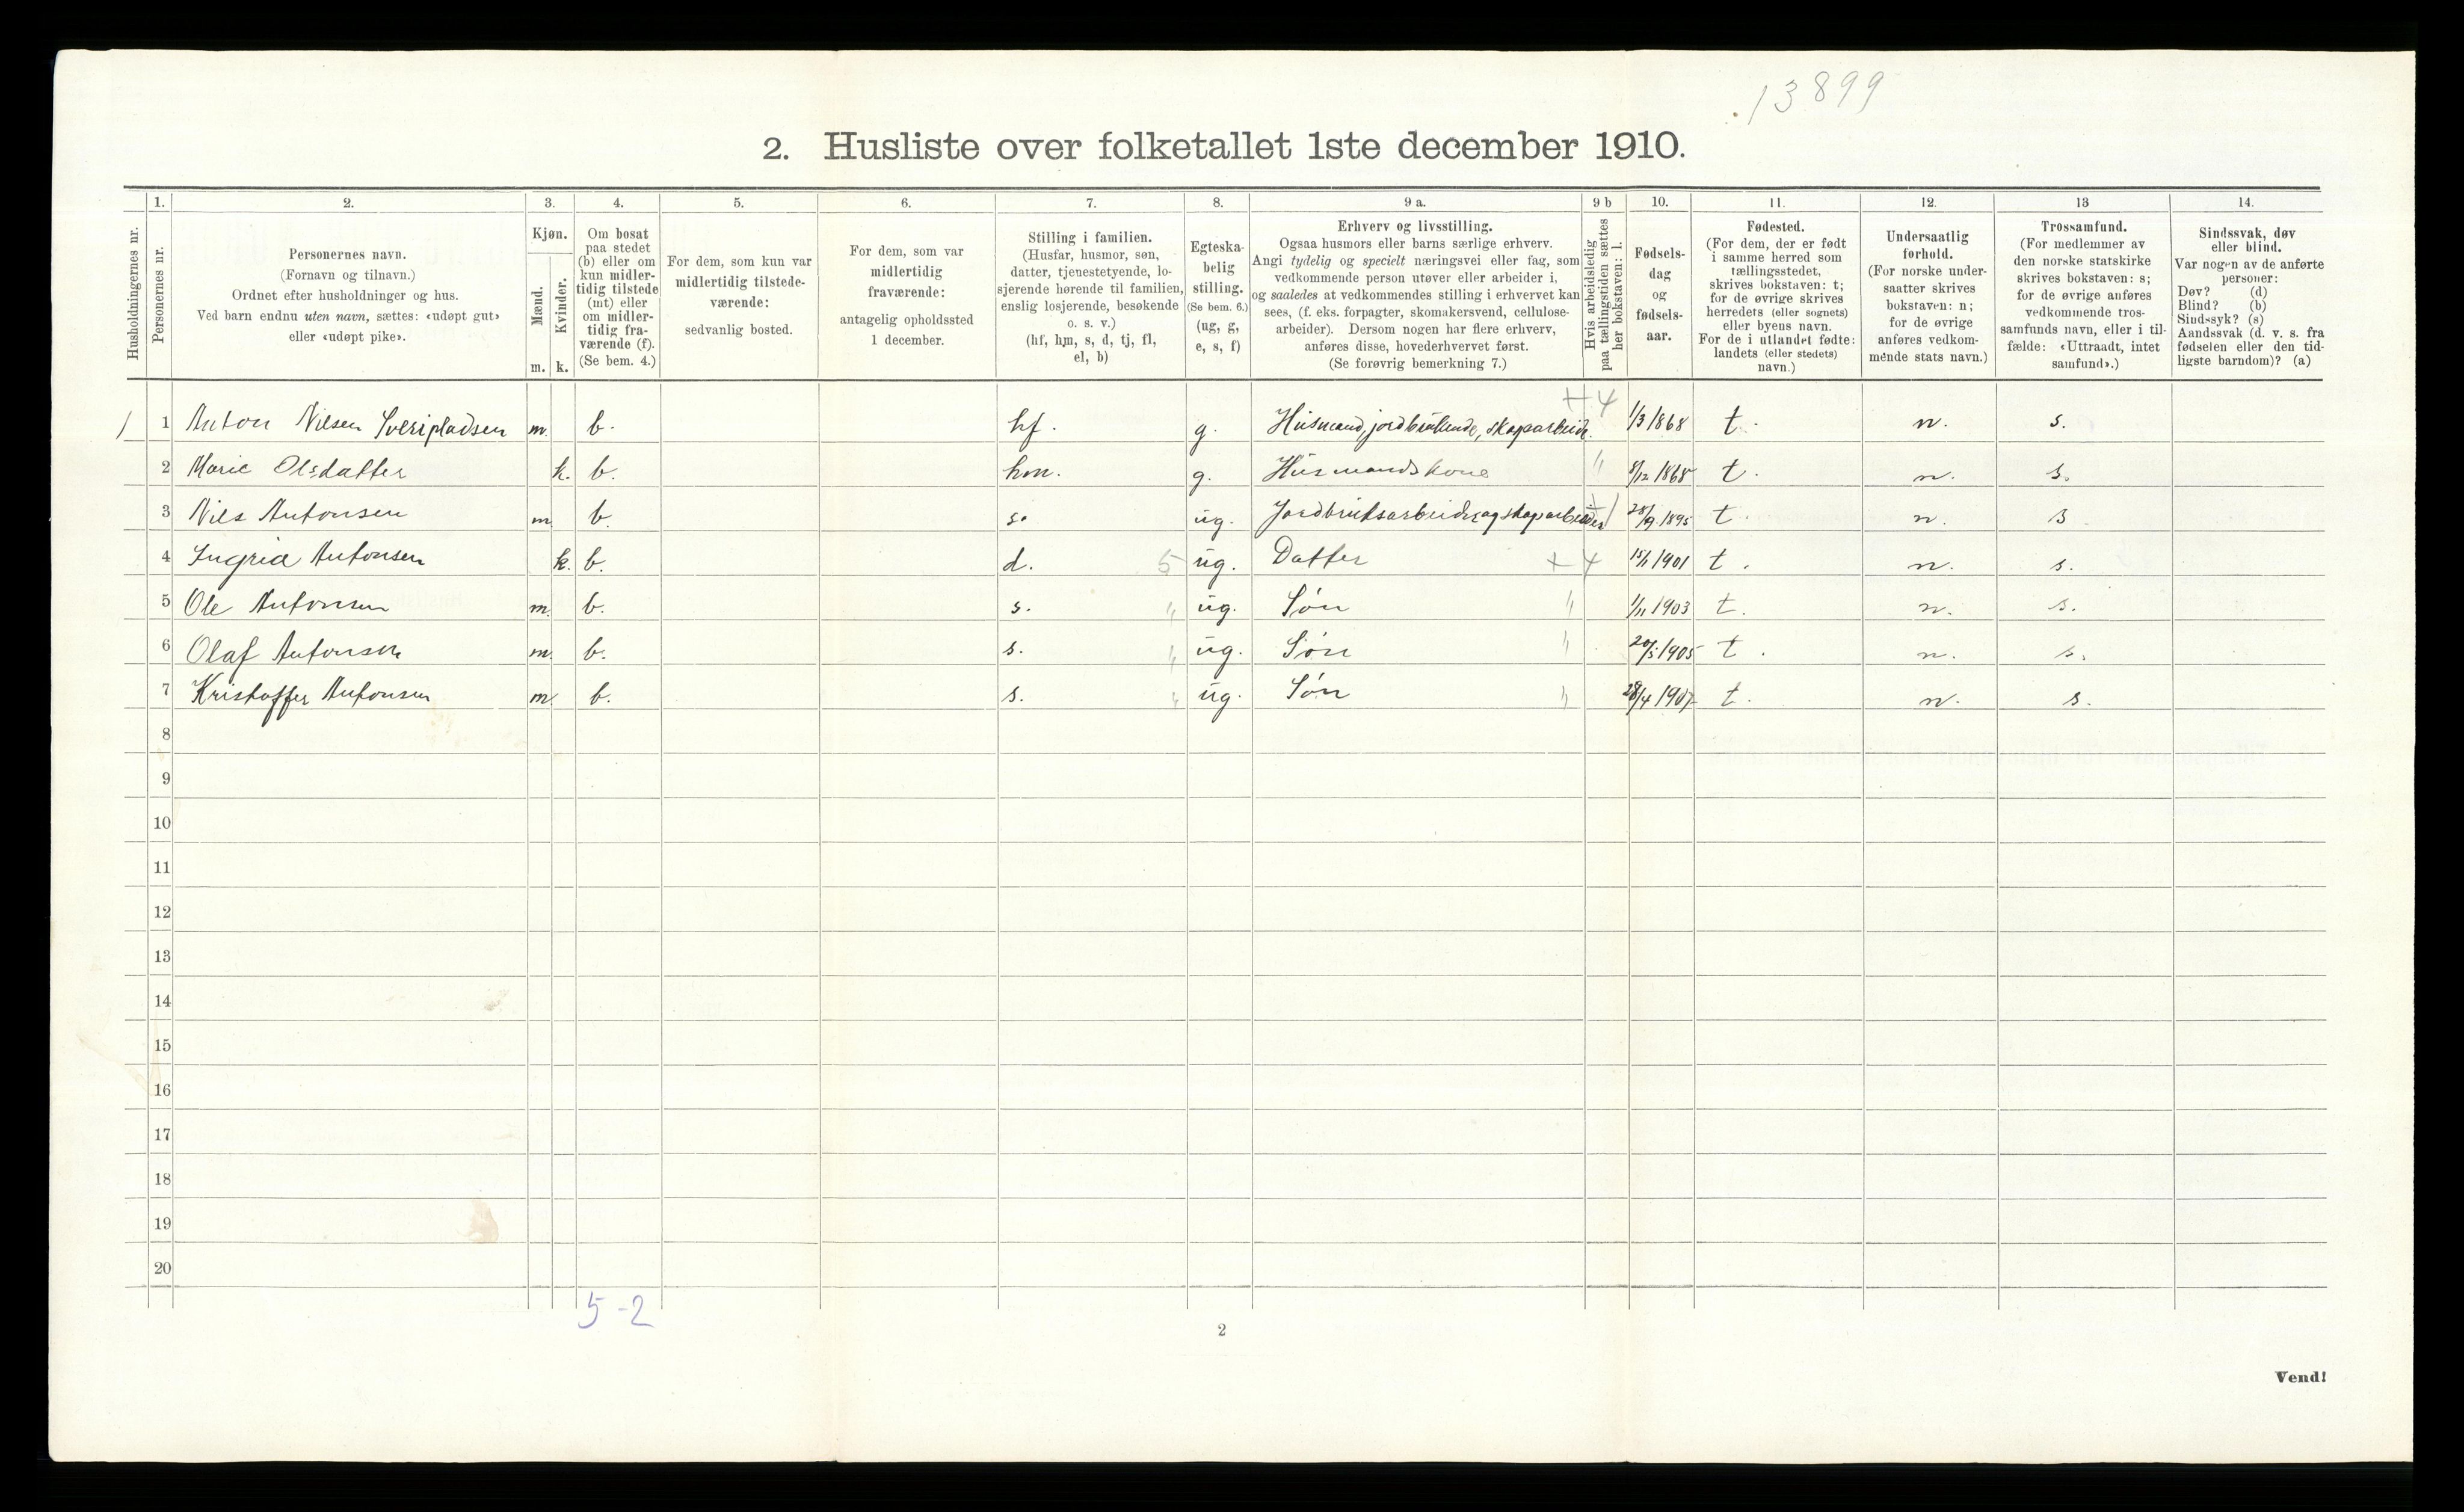 13899
2. Husliste over folketallet 1ste december 1910.
Husholdningernes nr.
1.
Personernes nr.
2.
Personernes navn.
(Fornavn og tilnavn.)
Ordnet efter husholdninger og hus.
Ved barn endnu uten navn, sættes: «udøpt gut»
eller «udøpt pike».
3.
Kjøn.
Mænd.
Kvinder.
m. k.
4.
Om bosat
paa stedet
(b) eller om
kun midler-
tidig tilstede
(mt) eller
om midler-
tidig fra-
værende (f).
(Se bem. 4.)
5.
For dem, som kun var
midlertidig tilstede-
værende:
sedvanlig bosted.
6.
For dem, som var
midlertidig
fraværende:
antagelig opholdssted
1 december.
7.
Stilling i familien.
(Husfar, husmor, søn,
datter, tjenestetyende, lo-
sjerende hørende til familien,
enslig losjerende, besøkende
o. s. v.)
(hf, hm, s, d, tj, fl,
el, b)
8.
Egteska-
belig
stilling.
(Se bem. 6.)
(ug, g,
e, s, f)
9 a.
Erhverv og livsstilling.
Ogsaa husmors eller barns særlige erhverv.
Angi tydelig og specielt næringsvei eller fag, som
vedkommende person utøver eller arbeider i,
og saaledes at vedkommendes stilling i erhvervet kan
sees, (f. eks. forpagter, skomakersvend, cellulose-
arbeider). Dersom nogen har flere erhverv,
anføres disse, hovederhvervet først.
(Se forøvrig bemerkning 7.)
9 b
Hvis arbeidsledig
paa tællingstiden sættes
her bokstaven: l.
10.
Fødsels-
dag
og
fødsels-
aar.
11.
Fødested.
(For dem, der er født
i samme herred som
tællingsstedet,
skrives bokstaven: t;
for de øvrige skrives
herredets (eller sognets)
eller byens navn.
For de i utlandet fødte:
landets (eller stedets)
navn.)
12.
Undersaatlig
forhold.
(For norske under-
saatter skrives
bokstaven: n;
for de øvrige
anføres vedkom-
mende stats navn.)
13
Trossamfund.
(For medlemmer av
den norske statskirke
skrives bokstaven: s;
for de øvrige anføres
vedkommende tros-
samfunds navn, eller i til-
fælde: «Uttraadt, intet
samfund».)
14.
Sindssvak, døv
eller blind.
Var nogen av de anførte
personer:
Døv? (d)
Blind? (b)
Sindssyk? (s)
Aandssvak (d. v. s. fra
fødselen eller den tid-
ligste barndom)? (a)
+ 4
1 1 Anton Nilsen m. b. hf. g. Husmand, jordbrukende, skogarbeid. 1/3 1868 t. n. s.
2 Marie Olsdatter k. b. hm. g. Husmandskone " 8/12 1868 t. n. s.
3 Nils Antonsen m b. s. ug. Jordbruksarbeider og skogarbeider 28/9 1895 t. n. s
4 Ingrid Antonsen k. b. d. 5 ug. Datter + 4 15/1 1901 t. n. s.
5 Ole Antonsen m. b. s. " ug. Søn " 1/11 1903 t. n. s.
6 Olaf Antonsen m. b. s. " ug. Søn " 20/5 1905 t. n. s.
7 Kristoffer Antonsen m. b. s. " ug. Søn " 28/4 1907 t. n. s.
8
9
10
11
12
13
14
15
16
17
18
19
20
5-2
2
Vend!